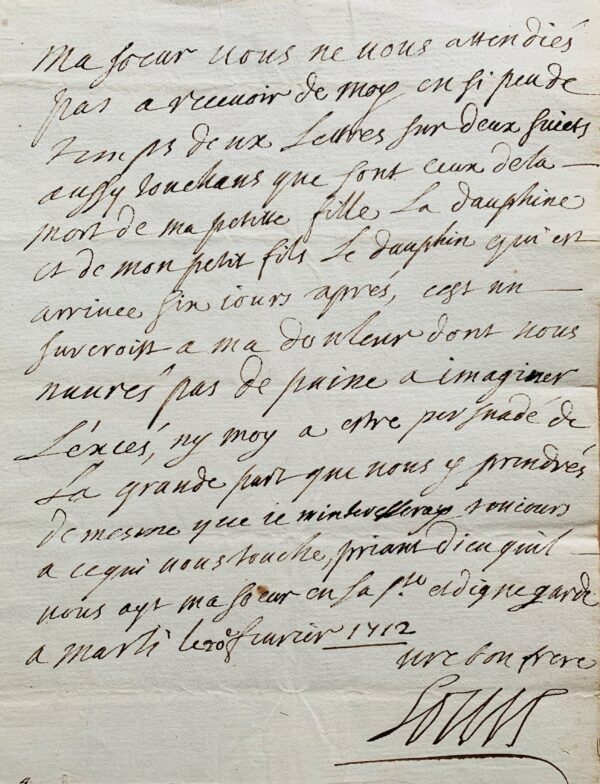 Ma soeur vous ne vous attendiés
pas a recevoir de moy en si peu de
temps deux Lettres sur deux suiets
aussy touchans que sont ceux de la
mort de ma petitte fille La dauphine
et de mon petit fils Le dauphin qui est
arrivee six iours apres, cest un
surcroist a ma douleur dont vous
naurés pas de peine a imaginer
L'éxcés, ny moy a estre persuadé de
La grande part que vous y prendrés
de mesme que ie minteresseray tousiours
a ce qui vous touche, priant dieu quil
vous ayt ma soeur en sa ste et digne garde
a marli le 20e feurier 1712
vre bon frere
Louis